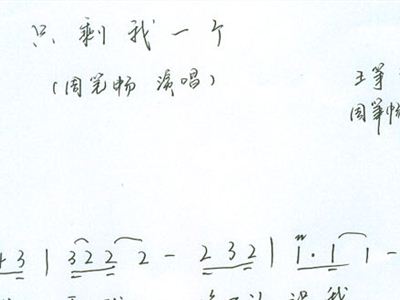 只剩我一个
(周笔畅 演唱)
王筝
周笔畅
43 | 322 2 - 232 | 1·1 1 -